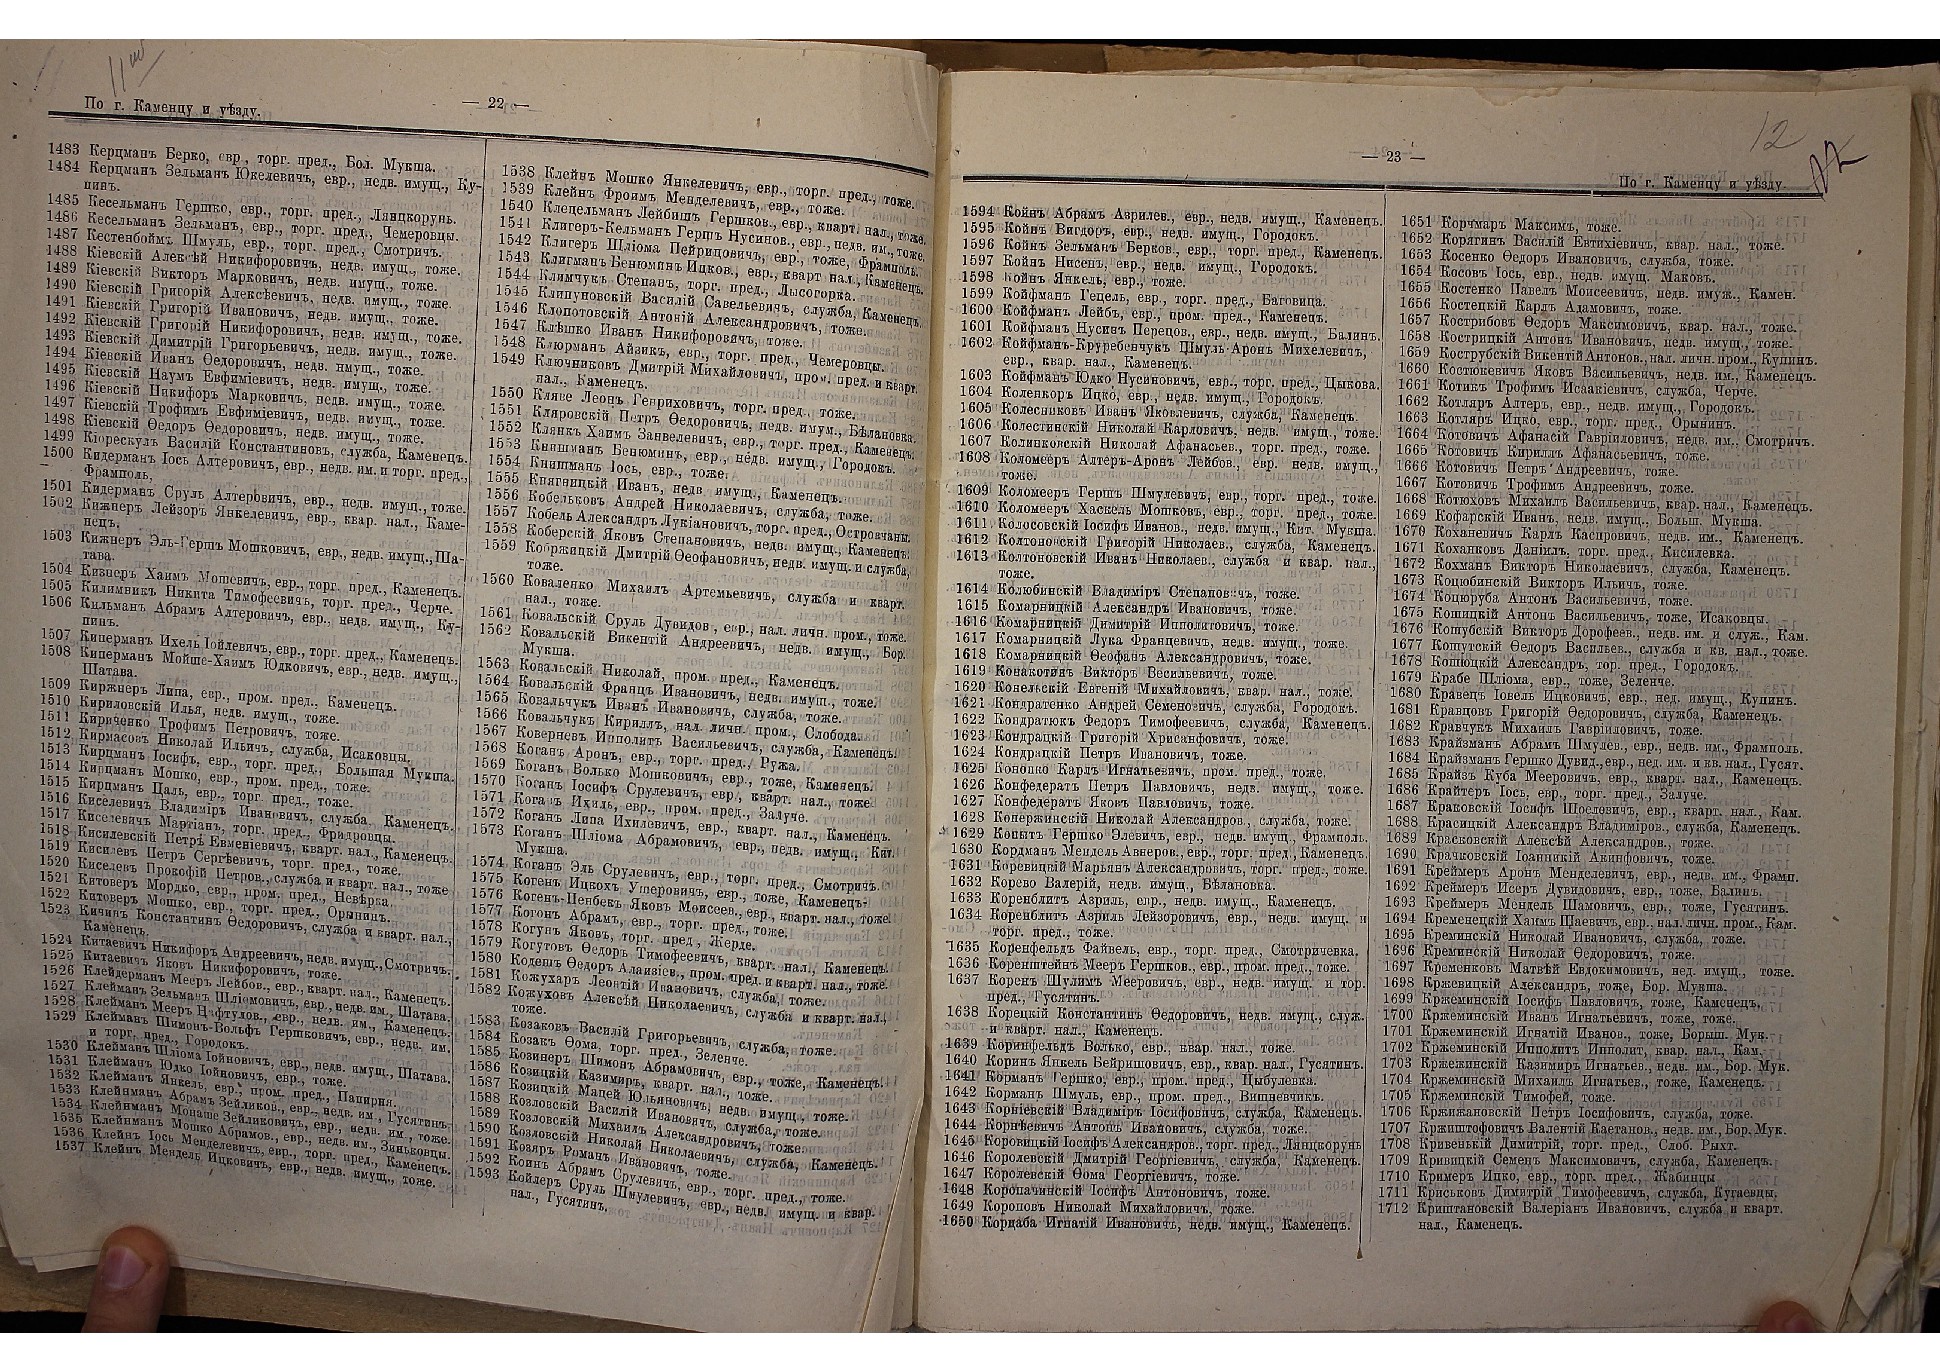 По г. Каменцу и уѣзду.
— 22 —
1483 Керцманъ Берко, евр., торг. пред., Бол. Мукша.
1484 Керцманъ Зельманъ Юкелевичъ, евр., недв. имущ., Ку-
пинъ.
1485 Кесельманъ Гершко, евр., торг. пред., Лянцкорунь.
1486 Кесельманъ Зельманъ, евр., торг. пред., Чемеровцы.
1487 Кестенбоймъ Шмуль, евр., торг. пред., Смотричъ.
1488 Кіевскій Алексѣй Никифоровичъ, недв. имущ., тоже.
1489 Кіевскій Викторъ Марковичъ, недв. имущ., тоже.
1490 Кіевскій Григорій Алексѣевичъ, недв. имущ., тоже.
1491 Кіевскій Григорій Ивановичъ, недв. имущ., тоже.
1492 Кіевскій Григорій Никифоровичъ, недв. имущ., тоже.
1493 Кіевскій Димитрій Григорьевичъ, недв. имущ., тоже.
1494 Кіевскій Иванъ Ѳедоровичъ, недв. имущ., тоже.
1495 Кіевскій Наумъ Евфиміевичъ, недв. имущ., тоже.
1496 Кіевскій Никифоръ Марковичъ, недв. имущ., тоже.
1497 Кіевскій Трофимъ Евфиміевичъ, недв. имущ., тоже.
1498 Кіевскій Ѳедоръ Ѳедоровичъ, недв. имущ., тоже.
1499 Кіорескулъ Василій Константиновъ, служба, Каменецъ.
1500 Кидерманъ Іось Алтеровичъ, евр., недв. им. и торг. пред.,
Фрамполь,
1501 Кидерманъ Сруль Алтеровичъ, евр., недв. имущ., тоже.
1502 Кижнеръ Лейзоръ Янкелевичъ, евр., квар. нал., Каме-
нецъ.
1503 Кижнеръ Эль-Гершъ Мошковичъ, евр., недв. имущ., Ша-
тава.
1504 Кизнеръ Хаимъ Мошевичъ, евр., торг. пред., Каменецъ.
1505 Килимникъ Никита Тимофеевичъ, торг. пред., Черче.
1506 Кильманъ Абрамъ Алтеровичъ, евр., недв. имущ., Ку-
пинъ.
1507 Киперманъ Ихель Іойлевичъ, евр., торг. пред., Каменецъ.
1508 Киперманъ Мойше-Хаимъ Юдковичъ, евр., недв. имущ.,
Шатава.
1509 Киржнеръ Липа, евр., пром. пред., Каменецъ.
1510 Кириловскій Илья, недв. имущ., тоже.
1511 Кириченко Трофимъ Петровичъ, тоже.
1512 Кирнасовъ Николай Ильичъ, служба, Исаковцы.
1513 Кирцманъ Іосифъ, евр., торг. пред., Большая Мукша.
1514 Кирцманъ Мошко, евр., пром. пред., тоже.
1515 Кирцманъ Цаль, евр., торг. пред., тоже.
1516 Киселевичъ Владиміръ Ивановичъ, служба, Каменецъ.
1517 Киселевичъ Мартіанъ, торг. пред., Фридровцы.
1518 Кисилевскій Петръ Евменіевичъ, кварт. нал., Каменецъ.
1519 Киселевъ Петръ Сергѣевичъ, торг. пред., тоже.
1520 Киселевъ Прокофій Петров., служба и кварт. нал., тоже
1521 Китоверъ Мордко, евр., пром. пред., Невѣрка.
1522 Китоверъ Мошко, евр., торг. пред., Орынинъ.
1523 Кичинъ Константинъ Ѳедоровичъ, служба и кварт. нал.,
Каменецъ.
1524 Китаевичъ Никифоръ Андреевичъ, недв. имущ., Смотричъ.
1525 Китаевичъ Яковъ Никифоровичъ, тоже.
1526 Клейдерманъ Мееръ Лейбов., евр., кварт. нал., Каменецъ.
1527 Клейманъ Зельманъ Шліомовичъ, евр., недв. им., Шатава.
1528 Клейманъ Мееръ Нафтулов., евр., недв. им., Каменецъ.
1529 Клейманъ Шимонъ-Вольфъ Гершковичъ, евр., недв. им.
и торг. пред., Городокъ.
1530 Клейманъ Шліома Іойновичъ, евр., недв. имущ., Шатава.
1531 Клейманъ Юдко Іойновичъ, евр., тоже.
1532 Клейманъ Янкель, евр., пром. пред., Папирня.
1533 Клейнманъ Абрамъ Зейликов., евр., недв. им., Гусятинъ.
1534 Клейнманъ Монаше Зейликовичъ, евр., недв. им., тоже.
1535 Клейнманъ Мошко Абрамов., евр., недв. им., Зиньковцы.
1536 Клейнъ Іось Менделевичъ, евр., торг. пред., Каменецъ.
1537 Клейнъ Мендель Ицковичъ, евр., недв. имущ., тоже.
1538 Клейнъ Мошко Янкелевичъ, евр., торг. пред., тоже.
1539 Клейнъ Фроимъ Менделевичъ, евр., тоже.
1540 Клецельманъ Лейбишъ Гершков., евр., кварт. нал., тоже.
1541 Клигеръ-Кельманъ Гершъ Нусинов., евр., недв. им., тоже.
1542 Клигеръ Шліома Пейрицовичъ, евр., тоже, Фрамполь.
1543 Клигманъ Бенюминъ Ицков., евр., кварт. нал., Каменецъ.
1544 Климчукъ Степанъ, торг. пред., Лысогорка.
1545 Клипуновскій Василій Савельевичъ, служба, Каменецъ.
1546 Клопотовскій Антоній Александровичъ, тоже.
1547 Клѣшко Иванъ Никифоровичъ, тоже.
1548 Клюрманъ Айзикъ, евр., торг. пред., Чемеровцы.
1549 Ключниковъ Дмитрій Михайловичъ, пром. пред. и кварт.
нал., Каменецъ.
1550 Кляве Леонъ Генриховичъ, торг. пред., тоже.
1551 Кляровскій Петръ Ѳедоровичъ, недв. имум., Бѣлановка.
1552 Клянкъ Хаимъ Занвелевичъ, евр., торг. пред., Каменецъ.
1553 Книшманъ Бенюминъ, евр., недв. имущ., Городокъ.
1554 Книшманъ Іось, евр., тоже.
1555 Княгницкій Иванъ, недв. имущ., Каменецъ.
1556 Кобельковъ Андрей Николаевичъ, служба, тоже.
1557 Кобель Александръ Лукіановичъ, торг. пред., Островчаны.
1558 Коберскій Яковъ Степановичъ, недв. имущ., Каменецъ.
1559 Кобржицкій Дмитрій Ѳеофановичъ, недв. имущ. и служба,
тоже.
1560 Коваленко Михаилъ Артемьевичъ, служба и кварт.
нал., тоже.
1561 Ковальскій Сруль Дувидов., евр., нал. личн. пром., тоже.
1562 Ковальскій Викентій Андреевичъ, недв. имущ., Бор.
Мукша.
1563 Ковальскій Николай, пром. пред., Каменецъ.
1564 Ковальскій Францъ Ивановичъ, недв. имущ., тоже.
1565 Ковальчукъ Иванъ Ивановичъ, служба, тоже.
1566 Ковальчукъ Кириллъ, нал. личн. пром., Слобода.
1567 Коверневъ Ипполитъ Васильевичъ, служба, Каменецъ.
1568 Коганъ Аронъ, евр., торг. пред., Ружа.
1569 Коганъ Волько Мошковичъ, евр., тоже, Каменецъ.
1570 Коганъ Іосифъ Срулевичъ, евр., кварт. нал., тоже.
1571 Коганъ Ихиль, евр., пром. пред., Залуче.
1572 Коганъ Липа Ихилевичъ, евр., кварт. нал., Каменецъ.
1573 Коганъ Шліома Абрамовичъ, евр., недв. имущ., Кит.
Мукша.
1574 Коганъ Эль Срулевичъ, евр., торг. пред., Смотричъ.
1575 Когенъ Ицкохъ Ушеровичъ, евр., тоже, Каменецъ.
1576 Когенъ-Пенбекъ Яковъ Моисеев., евр., кварт. нал., тоже.
1577 Когонъ Абрамъ, евр., торг. пред., тоже.
1578 Когунъ Яковъ, торг. пред., Жерде.
1579 Когутовъ Ѳедоръ Тимофеевичъ, кварт. нал., Каменецъ.
1580 Кодешъ Ѳедоръ Алаизіев., пром. пред. и кварт. нал., тоже.
1581 Кожухаръ Леонтій Ивановичъ, служба, тоже.
1582 Кожуховъ Алексѣй Николаевичъ, служба и кварт. нал.,
тоже.
1583 Козаковъ Василій Григорьевичъ, служба, тоже.
1584 Козакъ Ѳома, торг. пред., Зеленче.
1585 Козинеръ Шимонъ Абрамовичъ, евр., тоже, Каменецъ.
1586 Козицкій Казимиръ, кварт. нал., тоже.
1587 Козицкій Мацей Юльяновичъ, недв. имущ., тоже.
1588 Козловскій Василій Ивановичъ, служба, тоже.
1589 Козловскій Михаилъ Александровичъ, тоже.
1590 Козловскій Николай Николаевичъ, служба, Каменецъ.
1591 Козяръ Романъ Ивановичъ, тоже.
1592 Коинъ Абрамъ Срулевичъ, евр., торг. пред., тоже.
1593 Койлеръ Сруль Шмулевичъ, евр., недв. имущ. и квар.
нал., Гусятинъ.
12
— 23 —
По г. Каменцу и уѣзду.
1594 Койнъ Абрамъ Азрилев., евр., недв. имущ., Каменецъ.
1595 Койнъ Вигдоръ, евр., недв. имущ., Городокъ.
1596 Койнъ Зельманъ Берков., евр., торг. пред., Каменецъ.
1597 Койнъ Нисенъ, евр., недв. имущ., Городокъ.
1598 Койнъ Янкель, евр., тоже.
1599 Койфманъ Гецель, евр., торг. пред., Баговица.
1600 Койфманъ Лейбъ, евр., пром. пред., Каменецъ.
1601 Койфманъ Нусинъ Перецов., евр., недв. имущ., Балинъ.
1602 Койфманъ-Круребенчукъ Шмуль-Аронъ Михелевичъ,
евр., квар. нал., Каменецъ.
1603 Койфманъ Юдко Нусиновичъ, евр., торг. пред., Цыкова.
1604 Коленкоръ Ицко, евр., недв. имущ., Городокъ.
1605 Колесниковъ Иванъ Яковлевичъ, служба, Каменецъ.
1606 Колестинскій Николай Карловичъ, недв. имущ., тоже.
1607 Колинковскій Николай Афанасьев., торг. пред., тоже.
1608 Коломееръ Алтеръ-Аронъ Лейбов., евр. недв. имущ.,
тоже.
1609 Коломееръ Гершъ Шмулевичъ, евр., торг. пред., тоже.
1610 Коломееръ Хаскель Мошковъ, евр., торг. пред., тоже.
1611 Колосовскій Іосифъ Иванов., недв. имущ., Кит. Мукша.
1612 Колтоновскій Григорій Николаев., служба, Каменецъ.
1613 Колтоновскій Иванъ Николаев., служба и квар. нал.,
тоже.
1614 Колюбинскій Владиміръ Степановичъ, тоже.
1615 Комарницкій Александръ Ивановичъ, тоже.
1616 Комарницкій Димитрій Ипполитовичъ, тоже.
1617 Комарницкій Лука Францевичъ, недв. имущ., тоже.
1618 Комарницкій Ѳеофанъ Александровичъ, тоже.
1619 Конакотинъ Викторъ Весильевичъ, тоже.
1620 Конельскій Евгеній Михайловичъ, квар. нал., тоже.
1621 Кондратенко Андрей Семеновичъ, служба, Городокъ.
1622 Кондратюкъ Федоръ Тимофеевичъ, служба, Каменецъ.
1623 Кондрацкій Григорій Хрисанфовичъ, тоже.
1624 Кондрацкій Петръ Ивановичъ, тоже.
1625 Конопко Карлъ Игнатьевичъ, пром. пред., тоже.
1626 Конфедератъ Петръ Павловичъ, недв. имущ., тоже.
1627 Конфедератъ Яковъ Павловичъ, тоже.
1628 Конержинскій Николай Александров., служба, тоже.
1629 Копытъ Гершко Элевичъ, евр., недв. имущ., Фрамполь.
1630 Кордманъ Мендель Авнеров., евр., торг. пред., Каменецъ.
1631 Коревицкій Марьянъ Александровичъ, торг. пред., тоже.
1632 Корево Валерій, недв. имущ., Бѣлановка.
1633 Коренблитъ Азриль, евр., недв. имущ., Каменецъ.
1634 Коренблитъ Азриль Лейзоровичъ, евр., недв. имущ. и
торг. пред., тоже.
1635 Коренфельдъ Файвель, евр., торг. пред., Смотричевка.
1636 Коренштейнъ Мееръ Гершков., евр., пром. пред., тоже.
1637 Коренъ Шулимъ Мееровичъ, евр., недв. имущ. и тор.
пред., Гусятинъ.
1638 Корецкій Константинъ Ѳедоровичъ, недв. имущ., служ.
и кварт. нал., Каменецъ.
1639 Коринфельдъ Волько, евр., квар. нал., тоже.
1640 Коринъ Янкель Бейришовичъ, евр., квар. нал., Гусятинъ.
1641 Корманъ Гершко, евр., пром. пред., Цыбулевка.
1642 Корманъ Шмуль, евр., пром. пред., Вишневчикъ.
1643 Корніевскій Владиміръ Іосифовичъ, служба, Каменецъ.
1644 Корнѣевичъ Антонъ Ивановичъ, служба, тоже.
1645 Коровицкій Іосифъ Александров., торг. пред., Лянцкорунь
1646 Королевскій Дмитрій Георгіевичъ, служба, Каменецъ.
1647 Королевскій Ѳома Георгіевичъ, тоже.
1648 Коропачинскій Іосифъ Антоновичъ, тоже.
1649 Короповъ Николай Михайловичъ, тоже.
1650 Кордаба Игнатій Ивановичъ, недв. имущ., Каменецъ.
1651 Корчмаръ Максимъ, тоже.
1652 Корягинъ Василій Евтихіевичъ, квар. нал., тоже.
1653 Косенко Ѳедоръ Ивановичъ, служба, тоже.
1654 Косовъ Іось, евр., недв. имущ. Маковъ.
1655 Костенко Павелъ Моисеевичъ, недв. имуж., Камен.
1656 Костецкій Карлъ Адамовичъ, тоже.
1657 Кострибовъ Ѳедоръ Максимовичъ, квар. нал., тоже.
1658 Кострицкій Антонъ Ивановичъ, недв. имущ., тоже.
1659 Кострубскій Викентій Антонов., нал. личн. пром., Купинъ.
1660 Костюкевичъ Яковъ Васильевичъ, недв. им., Каменецъ.
1661 Котикъ Трофимъ Исаакіевичъ, служба, Черче.
1662 Котляръ Алтеръ, евр., недв. имущ., Городокъ.
1663 Котляръ Ицко, евр., торг. пред., Орынинъ.
1664 Котовичъ Афанасій Гавріиловичъ, недв. им., Смотричъ.
1665 Котовичъ Кириллъ Афанасьевичъ, тоже.
1666 Котовичъ Петръ Андреевичъ, тоже.
1667 Котовичъ Трофимъ Андреевичъ, тоже.
1668 Котюховъ Михаилъ Васильевичъ, квар. нал., Каменецъ.
1669 Кофарскій Иванъ, недв. имущ., Больш. Мукша.
1670 Коханевичъ Карлъ Касировичъ, недв. им., Каменецъ.
1671 Коханковъ Даніилъ, торг. пред., Кисилевка.
1672 Кохманъ Викторъ Николаевичъ, служба, Каменецъ.
1673 Коцюбинскій Викторъ Ильичъ, тоже.
1674 Коцюруба Антонъ Васильевичъ, тоже.
1675 Кошицкій Антонъ Васильевичъ, тоже, Исаковцы.
1676 Кошубскій Викторъ Дорофеев., недв. им. и служ., Кам.
1677 Кошутскій Ѳедоръ Васильев., служба и кв. нал., тоже.
1678 Кошюцкій Александръ, тор. пред., Городокъ.
1679 Крабе Шліома, евр., тоже, Зеленче.
1680 Кравецъ Іовель Ицковичъ, евр., нед. имущ., Купинъ.
1681 Кравцовъ Григорій Ѳедоровичъ, служба, Каменецъ.
1682 Кравчукъ Михаилъ Гавріиловичъ, тоже.
1683 Крайзманъ Абрамъ Шмулев., евр., недв. им., Фрамполь.
1684 Крайзманъ Гершко Дувид., евр., нед. им. и кв. нал., Гусят.
1685 Крайзъ Куба Мееровичъ, евр., кварт. нал., Каменецъ.
1686 Крайтеръ Іось, евр., торг. пред., Залуче.
1687 Краковскій Іосифъ Шоеловичъ, евр., кварт. нал., Кам.
1688 Красицкій Александръ Владиміров., служба, Каменецъ.
1689 Красковскій Алексѣй Александров., тоже.
1690 Крачковскій Іоанникій Акинфовичъ, тоже.
1691 Креймеръ Аронъ Менделевичъ, евр., недв. им., Фрамп.
1692 Креймеръ Исеръ Дувидовичъ, евр., тоже, Балинъ.
1693 Креймеръ Мендель Шамовичъ, евр., тоже, Гусятинъ.
1694 Кременецкій Хаимъ Шаевичъ, евр., нал. личн. пром., Кам.
1695 Креминскій Николай Ивановичъ, служба, тоже.
1696 Креминскій Николай Ѳедоровичъ, тоже.
1697 Кременковъ Матвѣй Евдокимовичъ, нед. имущ., тоже.
1698 Кржевицкій Александръ, тоже, Бор. Мукша.
1699 Кржеминскій Іосифъ Павловичъ, тоже, Каменецъ.
1700 Кржеминскій Иванъ Игнатьевичъ, тоже, тоже.
1701 Кржеминскій Игнатій Иванов., тоже, Борыш. Мук.
1702 Кржеминскій Ипполитъ Ипполит, квар. нал., Кам.
1703 Кржежинскій Казимиръ Игнатьев., недв. им., Бор. Мук.
1704 Кржеминскій Михаилъ Игнатьев., тоже, Каменецъ.
1705 Кржеминскій Тимофей, тоже.
1706 Кржижановскій Петръ Іосифовичъ, служба, тоже.
1707 Кржиштофовичъ Валентій Каетанов., недв. им., Бор. Мук.
1708 Кривенькій Димитрій, торг. пред., Слоб. Рыхт.
1709 Кривицкій Семенъ Максимовичъ, служба, Каменецъ.
1710 Кримеръ Ицко, евр., торг. пред., Жабинцы
1711 Криськовъ Димитрій Тимофеевичъ, служба, Кугаевцы.
1712 Криштановскій Валеріанъ Ивановичъ, служба и кварт.
нал., Каменецъ.